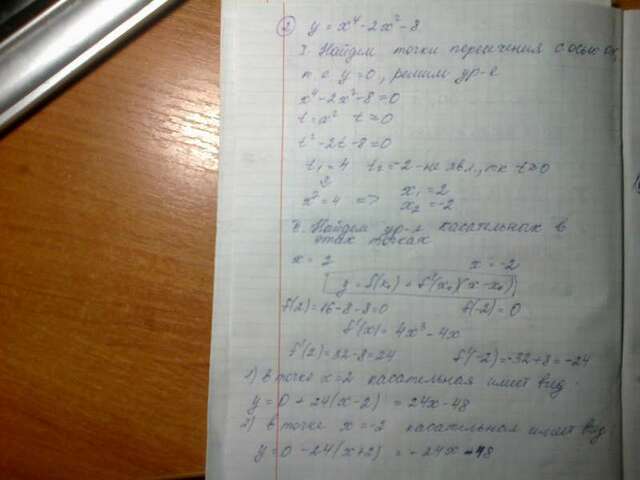 2) y = x⁴ - 2x² - 8
I. Найдем точки пересечения с осью Ox,
т.е. y=0, решим ур-е
x⁴ - 2x² - 8 = 0
t = x² t ≥ 0
t² - 2t - 8 = 0
t₁ = 4 t₂ = -2 - не явл., тк t ≥ 0
x² = 4 => x₁ = 2
x₂ = -2
Найдем ур-я касательных в
этих точках
x = 2 x = -2
y = f(x₀) + f'(x₀)(x - x₀)
f(2) = 16 - 8 - 8 = 0 f(-2) = 0
f'(x) = 4x³ - 4x
f'(2) = 32 - 8 = 24 f'(-2) = -32 + 8 = -24
1) в точке x=2 касательная имеет вид:
y = 0 + 24(x-2) = 24x - 48
2) в точке x = -2 касательная имеет вид
y = 0 - 24(x+2) = -24x - 48